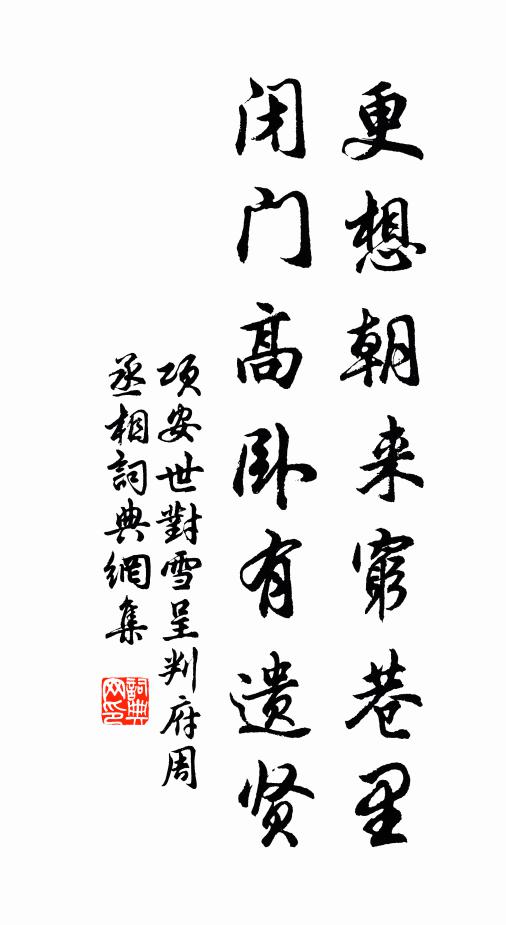 更想朝来穷巷里
闭门高卧有遗贤
项安世對雪呈判府周
丞相詞典網集
詞典网印